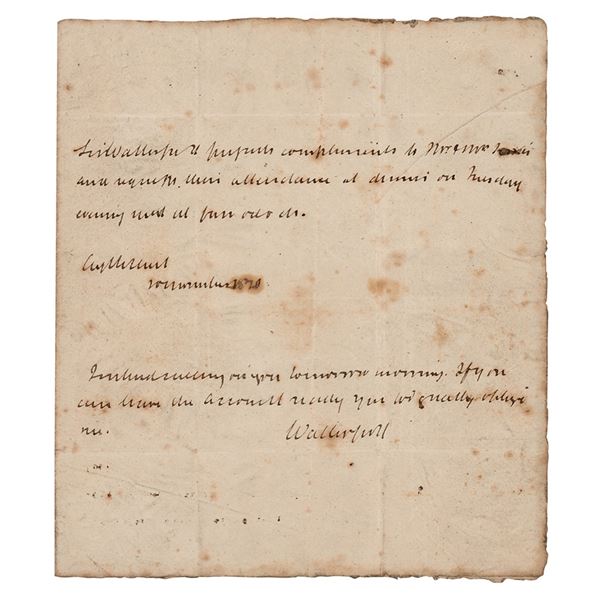 Sir Walter Scott presents compliments to Mr & Mrs
and requests their attendance at dinner on Tuesday
evening next at four o clock.
10 November 1820
I intend calling on you tomorrow morning. If you
can have the Account ready you wd greatly oblige
me. Walter Scott